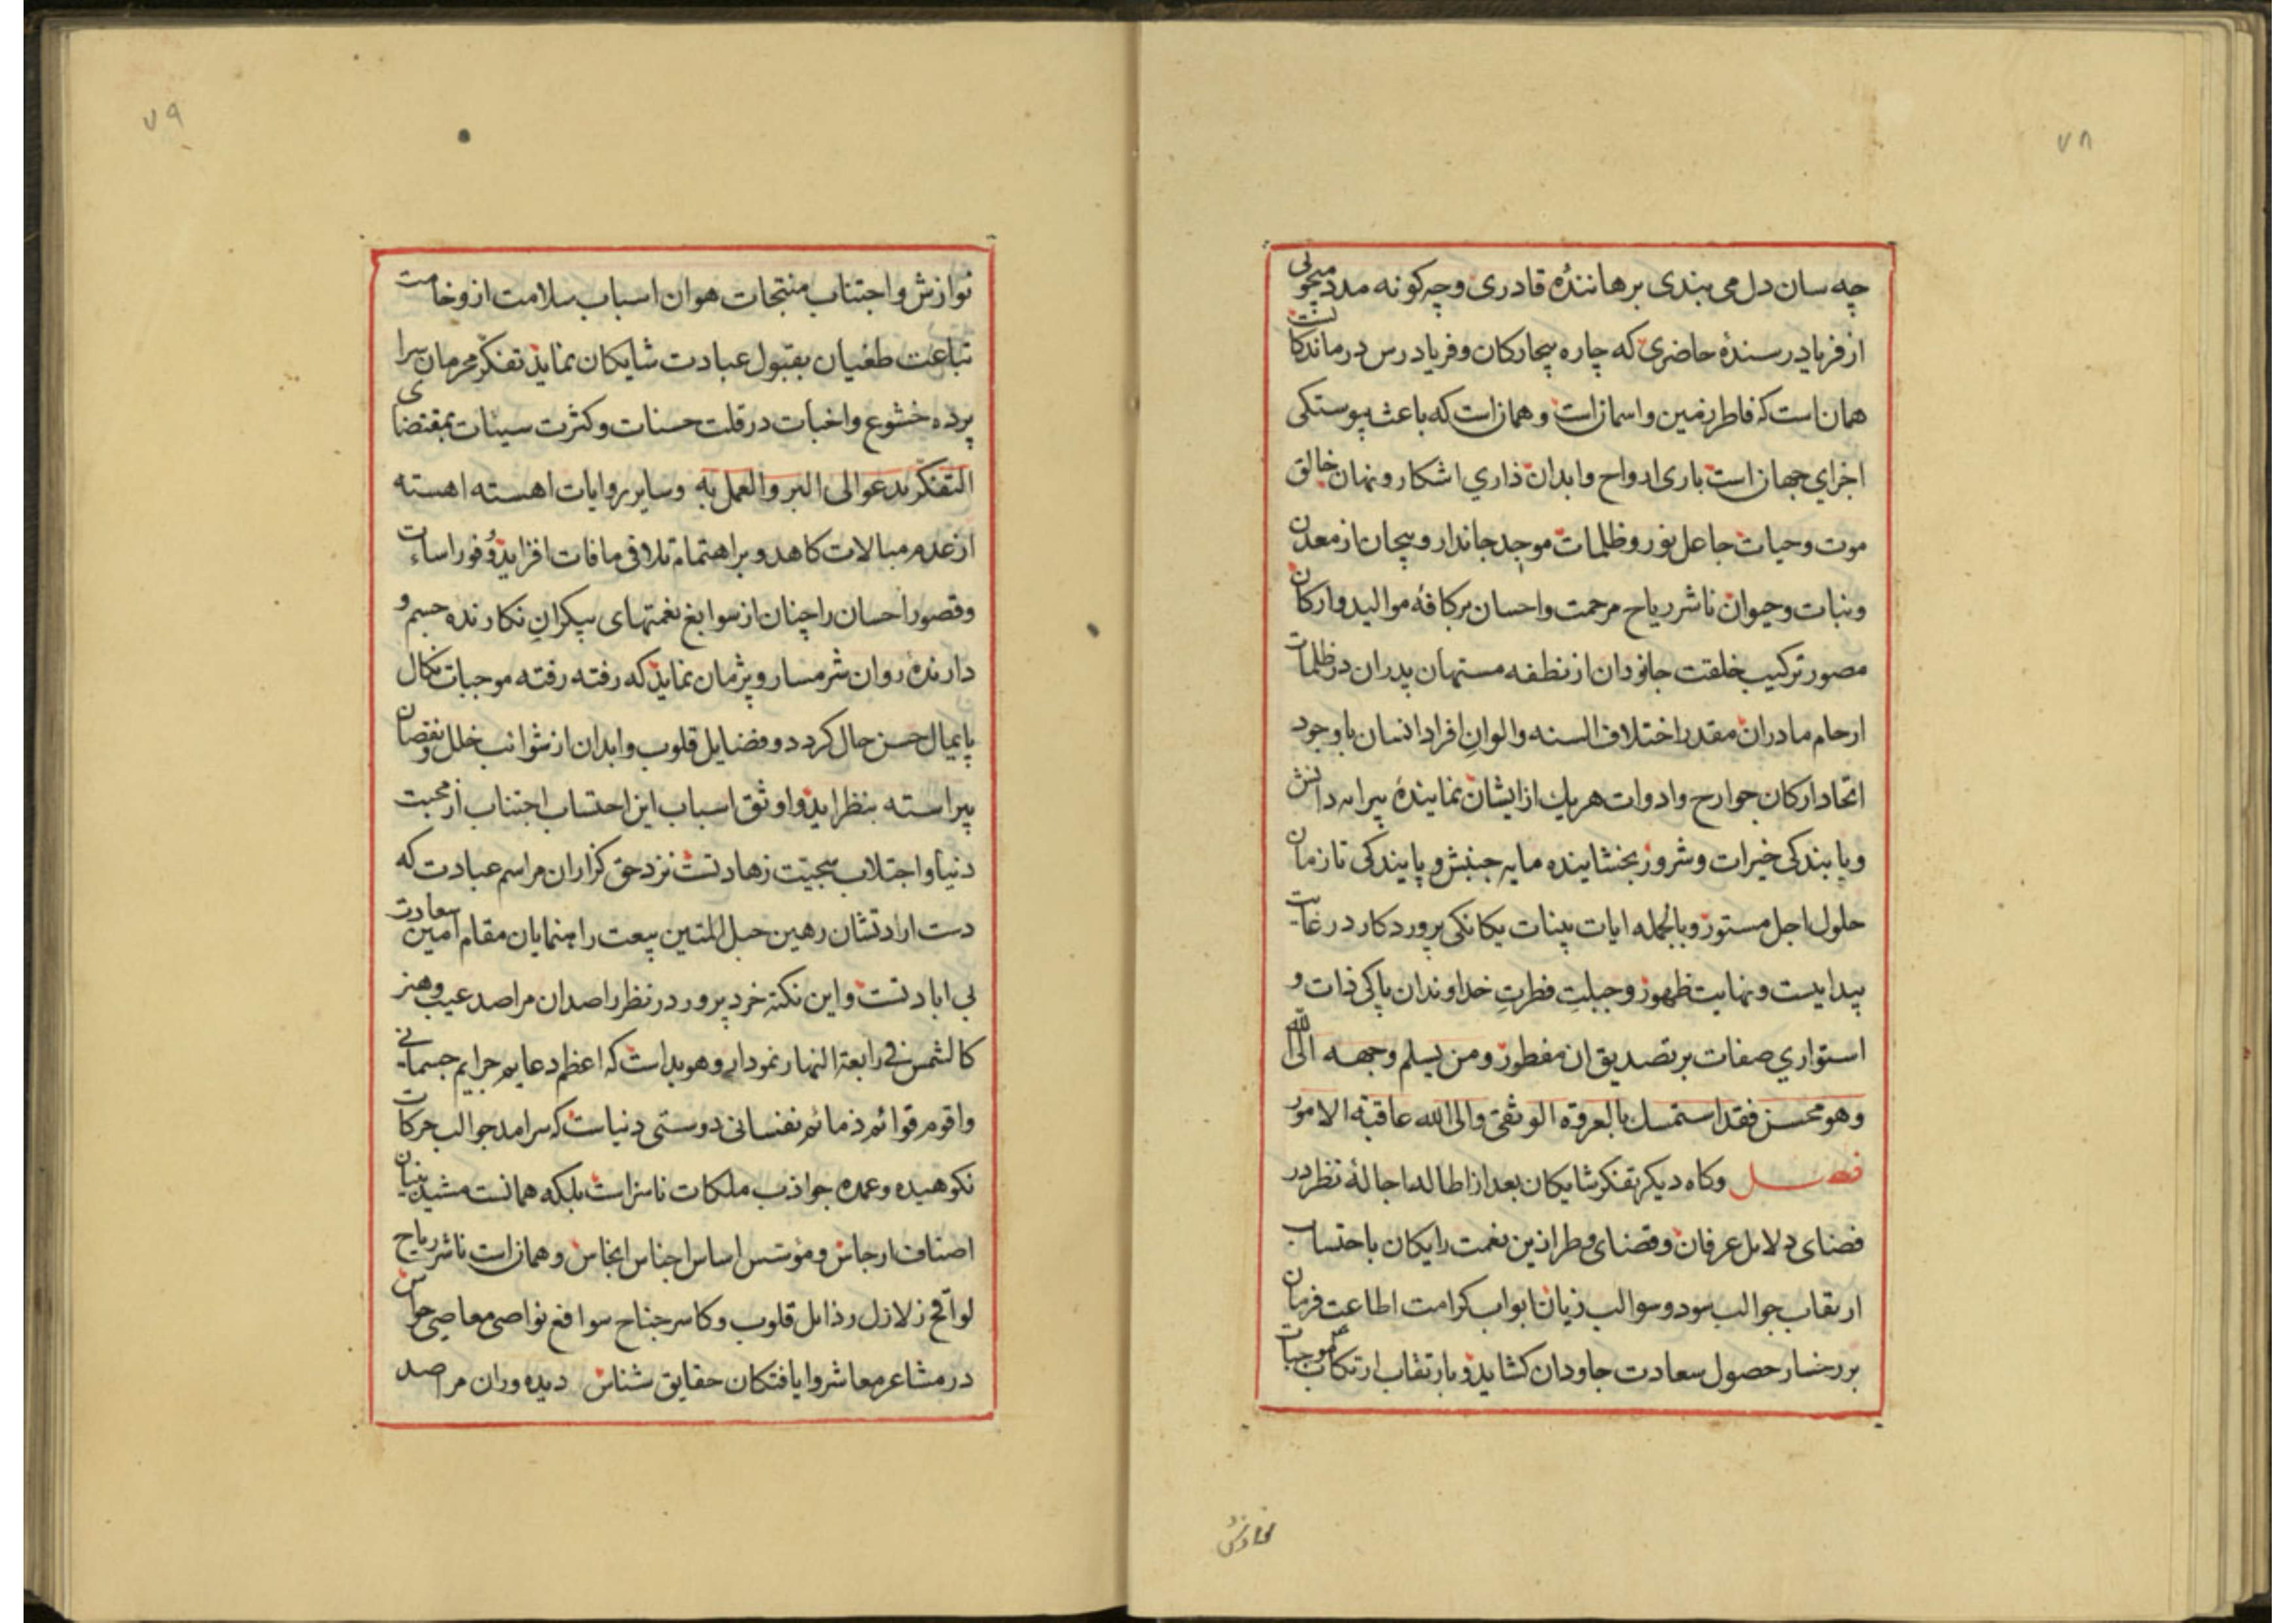 ۷۸
چه سان دل می بندی برهانندهٔ قادری و چه کونه مدد میجوئی
از فریادرسندهٔ حاضری که چاره بیچارکان و فریادرس درماندکانست
همان است که فاطر زمین و اسمانست و همانست که باعث پیوستکی
اجزای جهانست باری ارواح و ابدان ذاری اشکار و نهان خالق
موت و حیات جاعل نور و ظلمات موجد جاندار و بیجان از معدن
و نبات و حیوان ناشر ریاح مرحمت و احسان بر کافهٔ موالید و ارکان
مصور ترکیب خلقت جانوران از نطفه مستهان پدران در ظلمات
ارحام مادران مقدر اختلاف السنه و الوانِ افراد انسان با وجود
اتحاد ارکان جوارح و ادوات هر یك از ایشان نمایندهٔ پیرایه دانش
و پابندکی خیرات و شرور بخشاینده مایه جنبش و پایندکی تا زمان
حلول اجل مستور و بالجمله ایات بینات یکانکی پروردکار در غایت
پیدایست و نهایت ظهور و جبلتِ فطرتِ خداوندان پاکی ذات و
استواری صفات بر تصدیق ان مفطور و من یسلم وجهه الی الله
و هو محسن فقد استمسك بالعروة الوثقی و الی الله عاقبة الامور
فصل وکاه دیکر تفکر شایکان بعد از اطاله اجالهٔ نظر در
فضای دلایل عرفان و قضای وطر از ین نعمت رایکان باحتساب
ارتقاب جوالب سود و سوالب زیان ابواب کرامت اطاعت فرمان
بر رخسار حصول سعادت جاودان کشاید و بارتقاب ارتکاب موجبات
۷۹
نوازش و اجتناب منتجات هوان اسباب سلامت از وخامت
تباعت طغیان بقبول عبادت شایکان نماید تفکّر محرمان سرا
پرده خشوع و اخبات در قلت حسنات و کثرت سیئات بمقتضای
التفکّر یدعو الی البر و العمل به و سایر روایات اهسته اهسته
از عدم مبالات کاهد و بر اهتمام تلافی مافات افزاید و فور اساءت
و قصور احسان را چنان از سوابغ نعمتهای بیکران نکارنده جسم و
دارندهٔ روان شرمسار و پژمان نماید که رفته رفته موجبات نکال
پایمال حسن حال کردد و فضایل قلوب و ابدان از شوائب خلل و نقصان
پیراسته بنظر اید و اوثق اسباب این احتساب اجتناب از محبت
دنیا و اجتلاب سجیت زهادتست نزد حق کزاران مراسم عبادت که
دست ارادتشان رهین حبل المتین بیعت راهنمایان مقام امین سعادت
بی ابادتست و این نکتهٔ خرد پرور در نظر راصدان مراصد عیب و هنر
کالشمس فی رابعة النهار نمودار و هویداست که اعظم دعایم جرایم جسمانی
و اقوم قوائم ذمائم نفسانی دوستی دنیاست که سرامد جوالب حرکات
نکوهیده و عمده جواذب ملکات ناسزاست بلکه همانست مشید بنیان
اصناف ارجاس و مؤسس اساس اجناس انجاس و همانست ناشر ریاح
لواقح زلازل رذایل قلوب و کاسر جناح سوافع نواصی معاصی حواس
در مشاعر معاشر وایافتکان حقایق شناس دیده وران مراصد